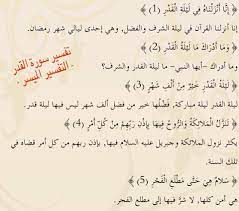 ﴿ إِنَّا أَنْزَلْنَاهُ فِي لَيْلَةِ الْقَدْرِ (1) ﴾
إنا أنزلنا القرآن في ليلة الشرف والفضل, وهي إحدى ليالي شهر رمضان.
﴿ وَمَا أَدْرَاكَ مَا لَيْلَةُ الْقَدْرِ (2) ﴾
وما أدراك -أيها النبي- ما ليلة القدر والشرف؟
تفسير سورة القدر
التفسير الميسر.
﴿ لَيْلَةُ الْقَدْرِ خَيْرٌ مِنْ أَلْفِ شَهْرٍ (3) ﴾
ليلة القدر ليلة مباركة, فضلُها خير من فضل ألف شهر ليس فيها ليلة قدر.
﴿ تَنَزَّلُ الْمَلائِكَةُ وَالرُّوحُ فِيهَا بِإِذْنِ رَبِّهِمْ مِنْ كُلِّ أَمْرٍ (4) ﴾
يكثر نزول الملائكة وجبريل عليه السلام فيها, بإذن ربهم من كل أمر قضاه في
تلك السنة.
﴿ سَلامٌ هِيَ حَتَّى مَطْلَعِ الْفَجْرِ (5) ﴾
هي أمن كلها, لا شرَّ فيها إلى مطلع الفجر.